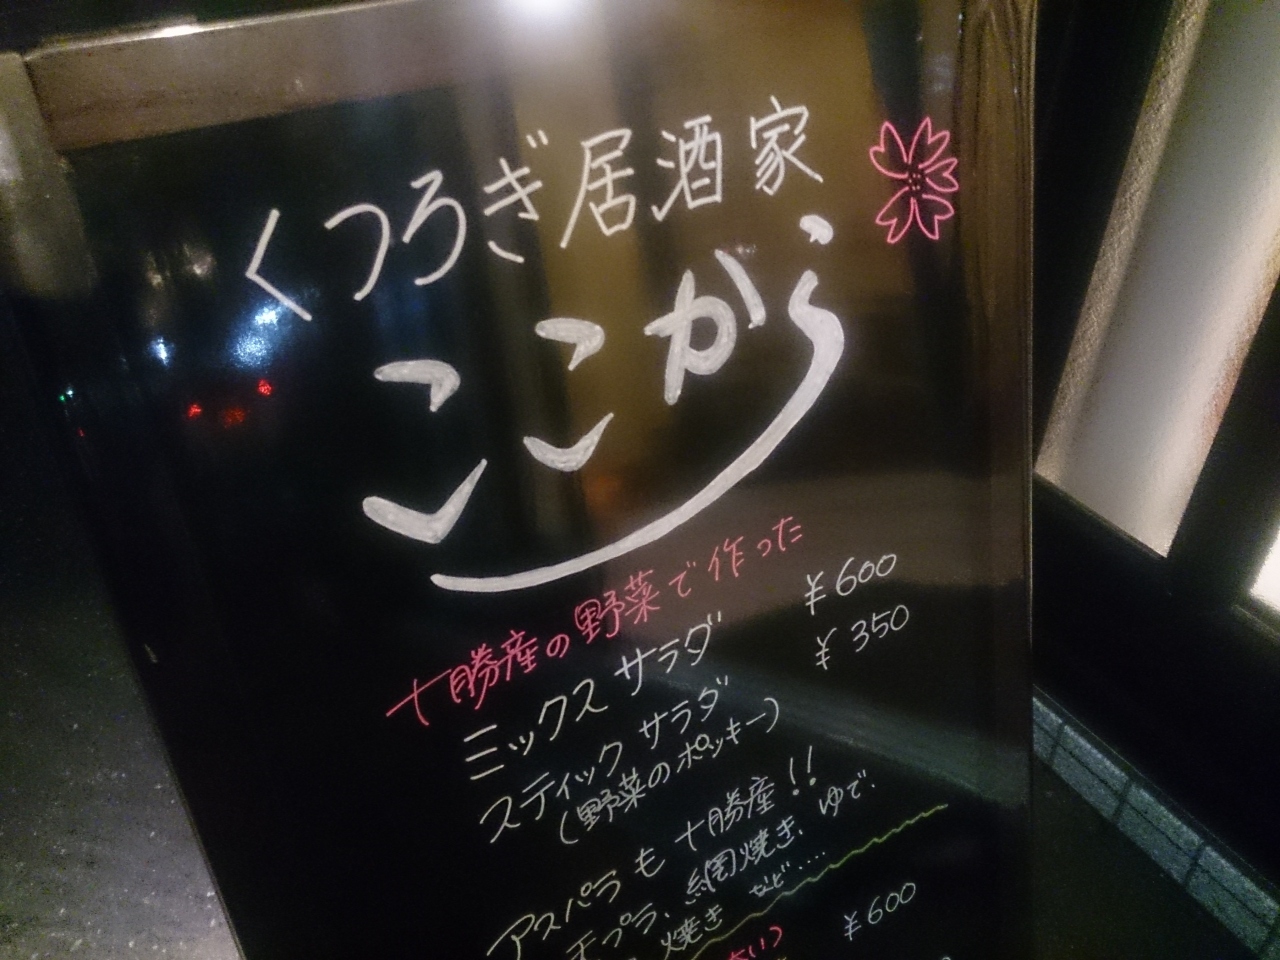 くつろぎ居酒家
ここから
十勝産の野菜で作った
ミックスサラダ ¥600
スティックサラダ ¥350
(野菜のポッキー)
アスパラも十勝産!!
天プラ、網焼き、ゆで、
焼き など....
¥600